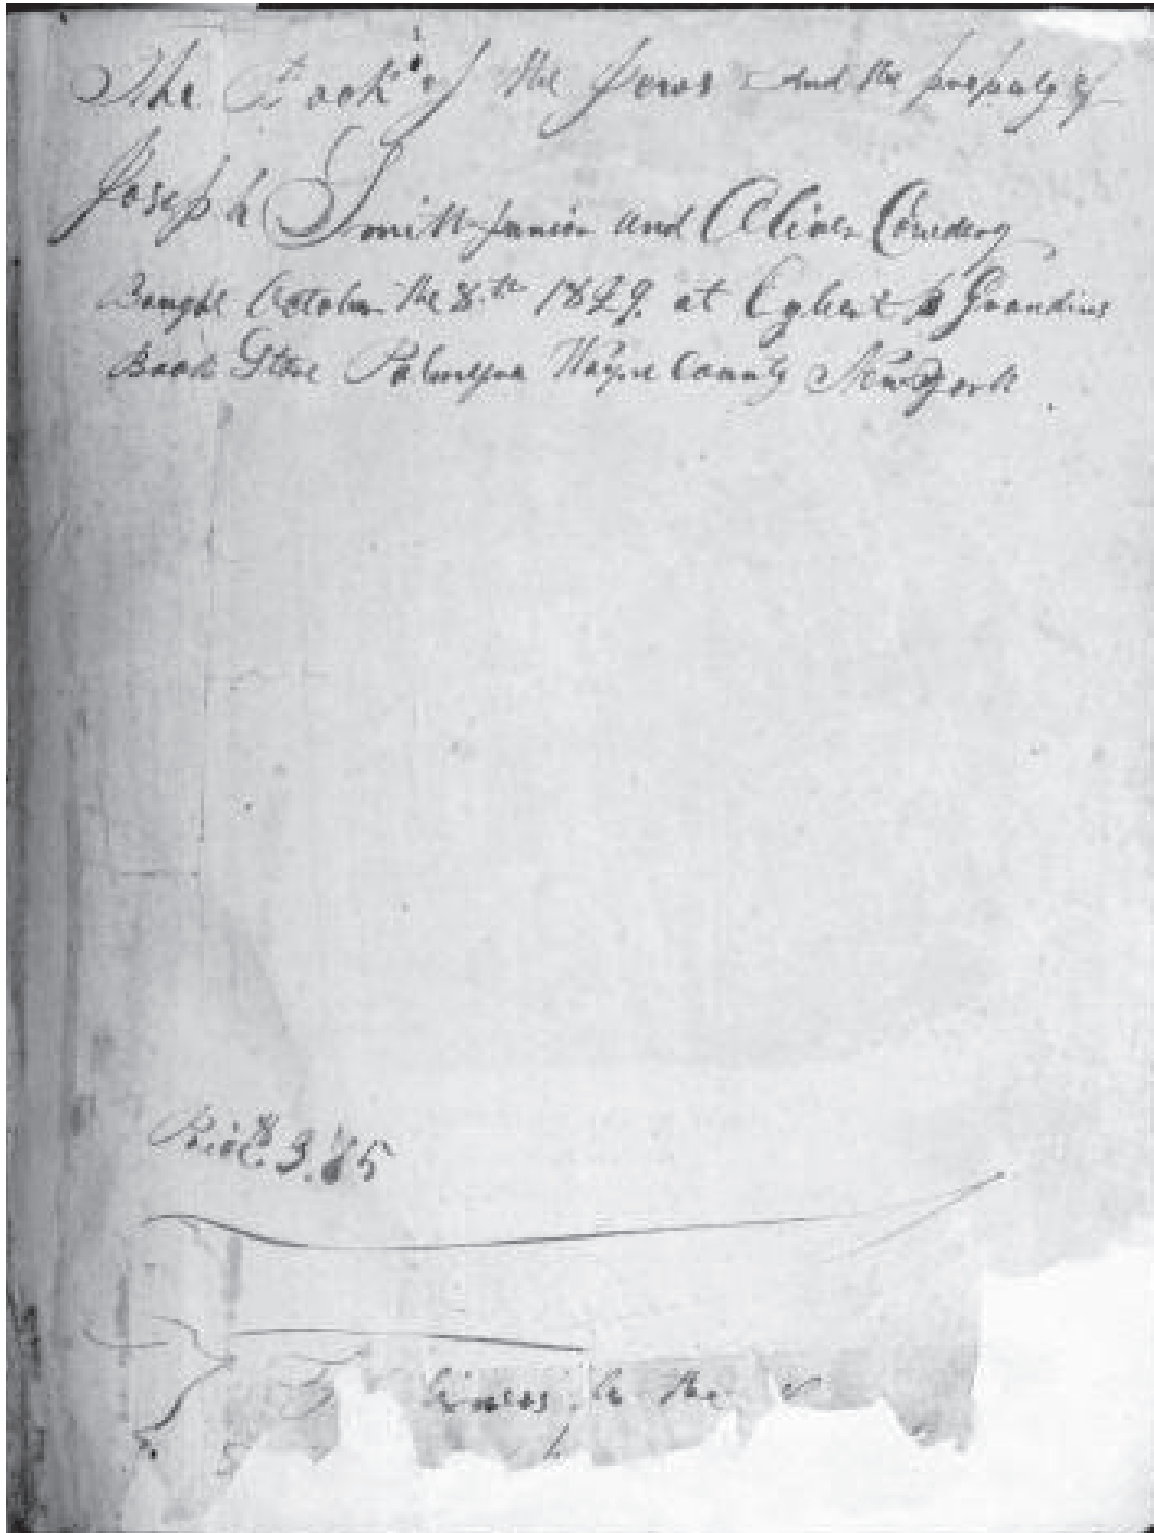 The Book of the Jews And the property of
Joseph Smith Junior and Oliver Cowdery
Bought October the 8th 1829 at Egbert B Grandins
Book Store Palmyra Wayne County New York
Price $3.85
to the